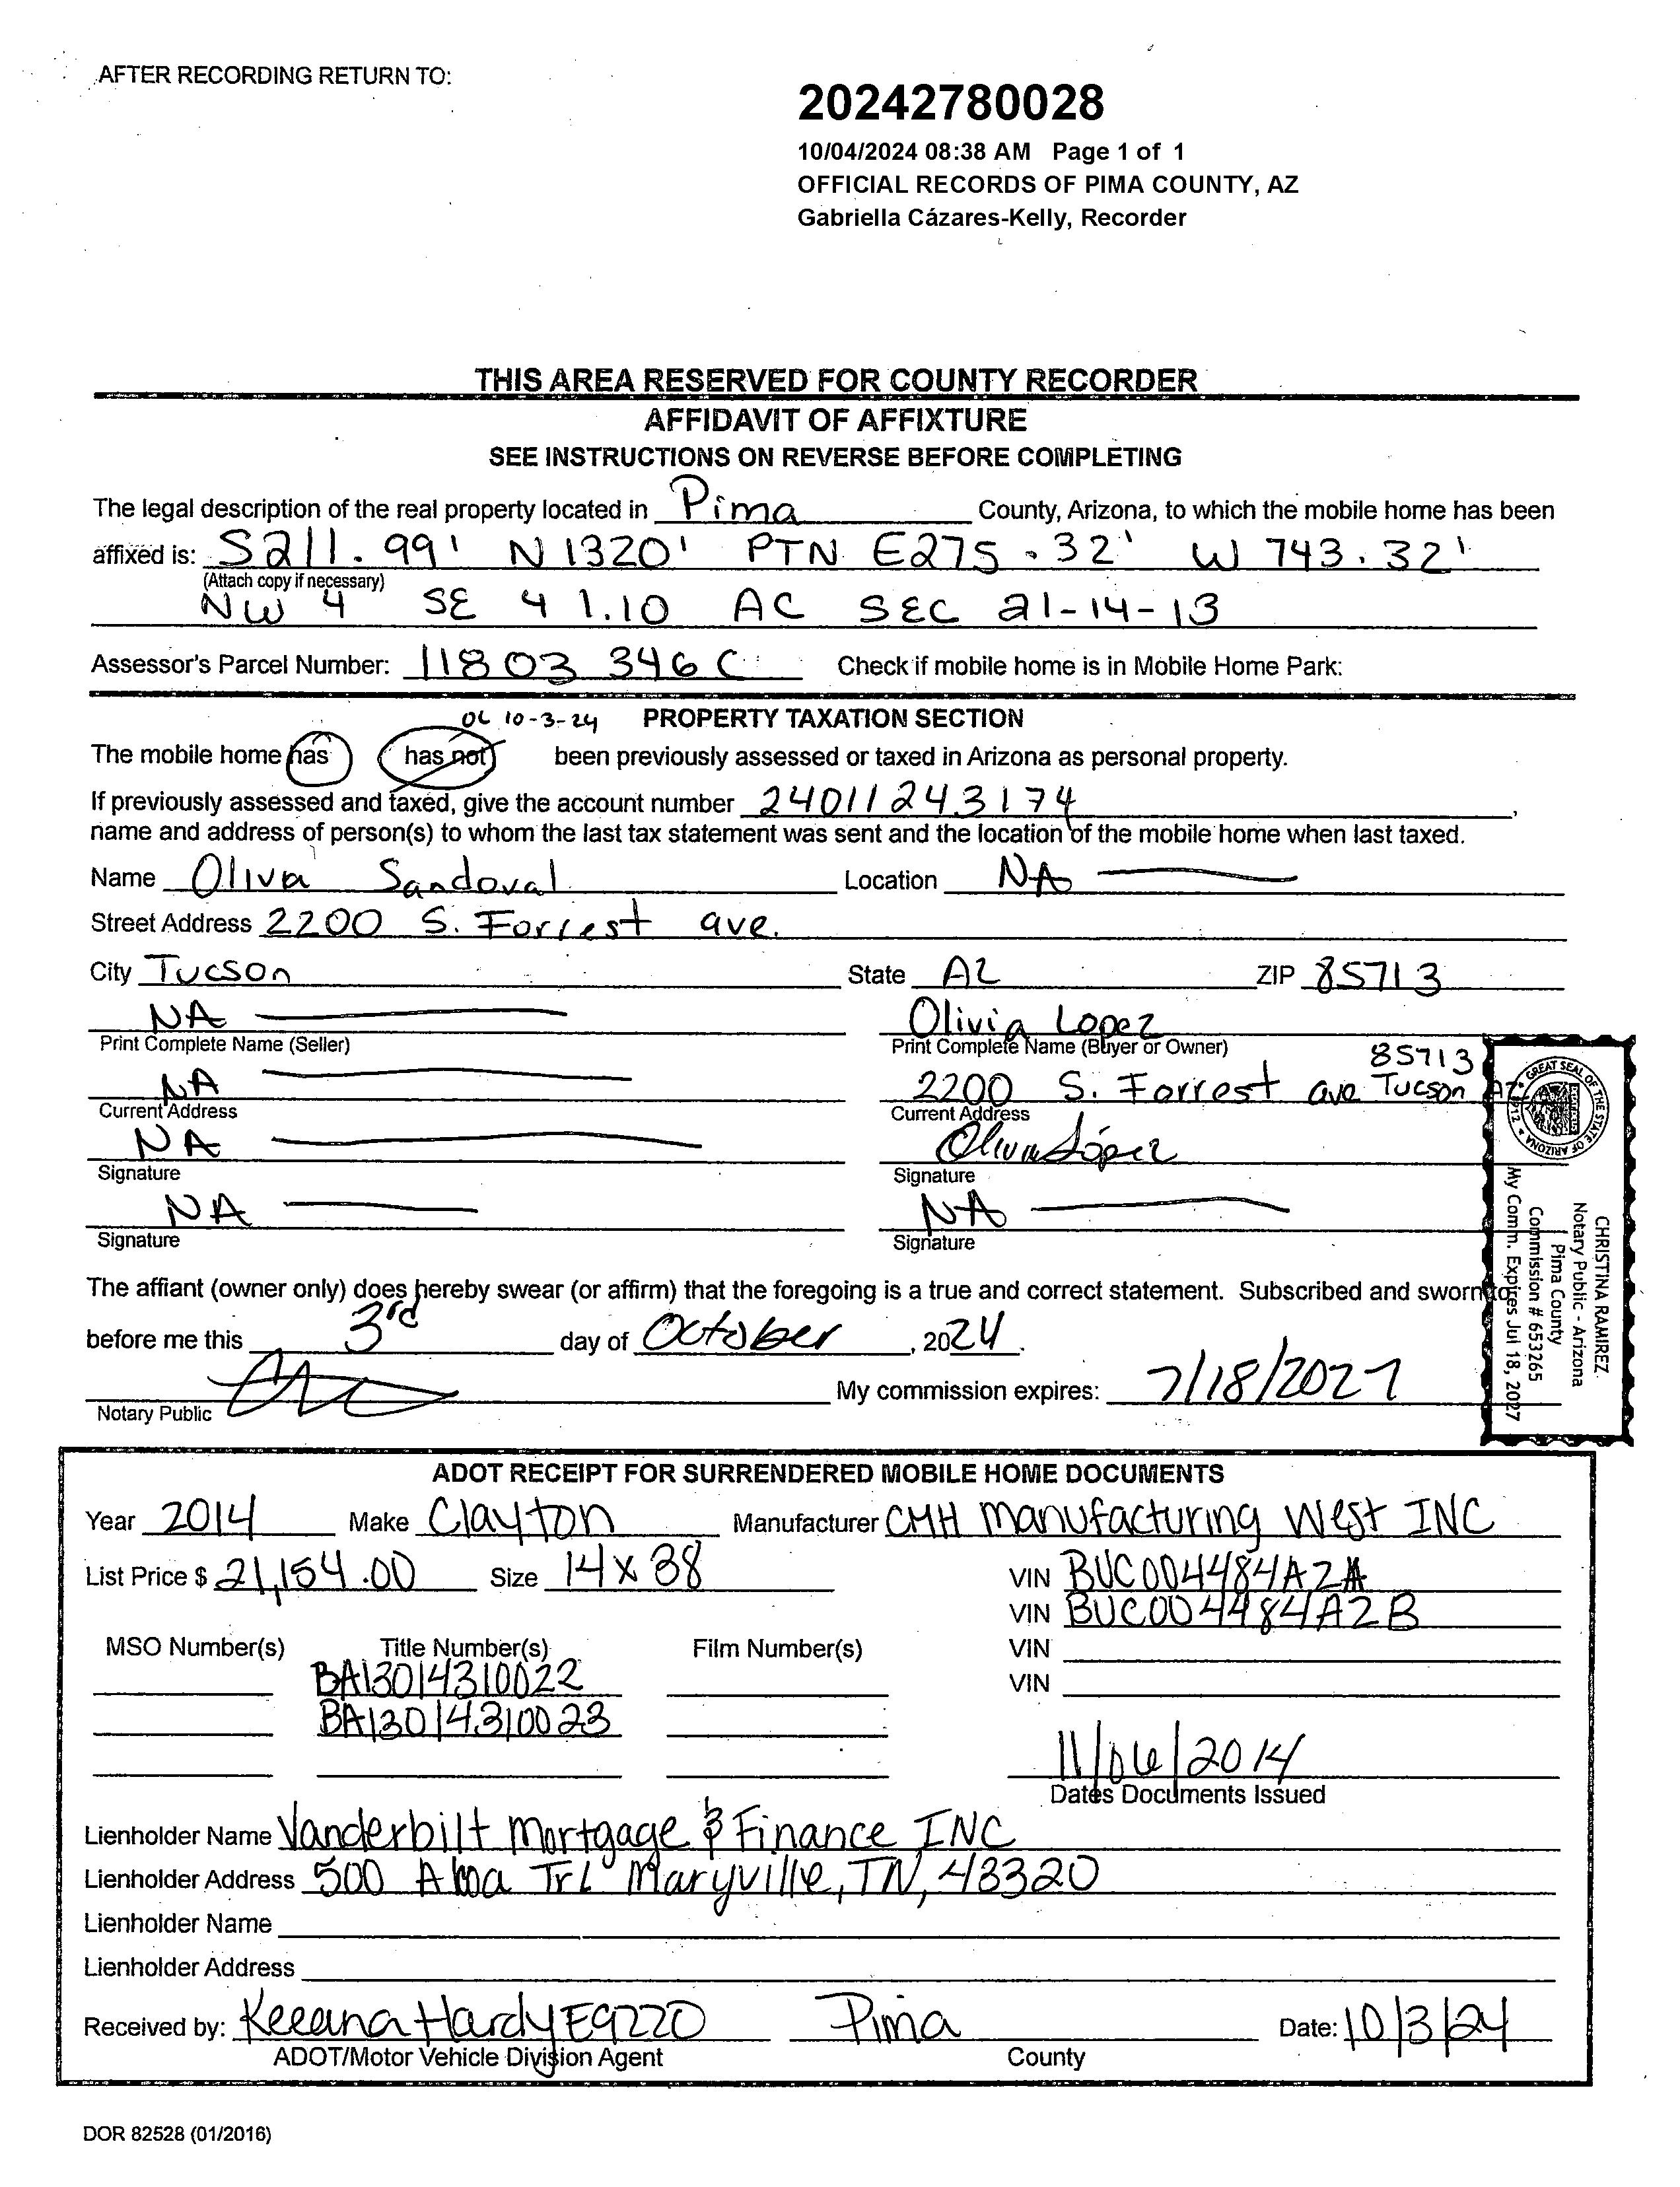 AFTER RECORDING RETURN TO:
20242780028
10/04/2024 08:38 AM Page 1 of 1
OFFICIAL RECORDS OF PIMA COUNTY, AZ
Gabriella Cázares-Kelly, Recorder
THIS AREA RESERVED FOR COUNTY RECORDER
AFFIDAVIT OF AFFIXTURE
SEE INSTRUCTIONS ON REVERSE BEFORE COMPLETING
The legal description of the real property located in Pima County, Arizona, to which the mobile home has been
affixed is: S211.99' N1320' PTN E275.32' W 743.32'
(Attach copy if necessary)
NW 4 SE 4 1.10 AC SEC 21-14-13
Assessor's Parcel Number: 11803 346C Check if mobile home is in Mobile Home Park:
OL 10-3-24 PROPERTY TAXATION SECTION
The mobile home has has not been previously assessed or taxed in Arizona as personal property.
If previously assessed and taxed, give the account number 24011243174,
name and address of person(s) to whom the last tax statement was sent and the location of the mobile home when last taxed.
Name Oliva Sandoval Location NA
Street Address 2200 S. Forrest ave.
City Tucson State AZ ZIP 85713
NA Olivia Lopez
Print Complete Name (Seller) Print Complete Name (Buyer or Owner)
85713
NA 2200 S. Forrest ave Tucson AZ
Current Address Current Address
NA Olivia López
Signature Signature
NA NA
Signature Signature
GREAT SEAL OF THE STATE OF ARIZONA 1912
CHRISTINA RAMIREZ
Notary Public - Arizona
Pima County
Commission # 653265
My Comm. Expires Jul 18, 2027
The affiant (owner only) does hereby swear (or affirm) that the foregoing is a true and correct statement. Subscribed and sworn to
before me this 3rd day of October, 2024.
My commission expires: 7/18/2027
Notary Public
ADOT RECEIPT FOR SURRENDERED MOBILE HOME DOCUMENTS
Year 2014 Make Clayton Manufacturer CMH Manufacturing West INC
List Price $ 21,154.00 Size 14 x 38 VIN BUC004484AZA
VIN BUC004484AZB
MSO Number(s) Title Number(s) Film Number(s) VIN
BA13014310022 VIN
BA13014310023
11/06/2014
Dates Documents Issued
Lienholder Name Vanderbilt Mortgage & Finance INC
Lienholder Address 500 Alcoa Trl Maryville, TN, 48320
Lienholder Name
Lienholder Address
Received by: Keeana Hardy E9220 Pima Date: 10/3/24
ADOT/Motor Vehicle Division Agent County
DOR 82528 (01/2016)